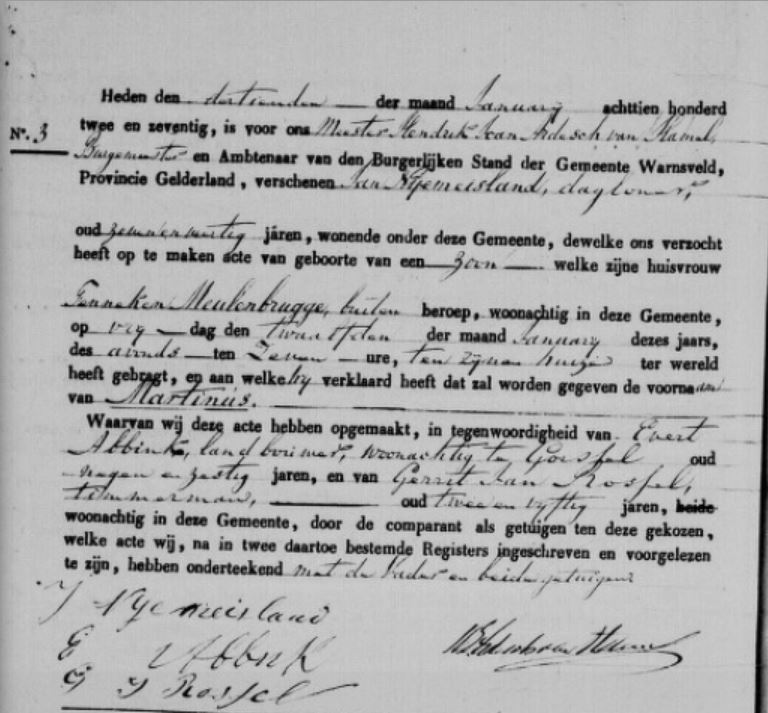 Heden den dertienden der maand January achttien honderd
No. 3 twee en zeventig, is voor ons Meester Hendrik Jean Ardesch van Hamel,
Burgemeester en Ambtenaar van den Burgerlijken Stand der Gemeente Warnsveld,
Provincie Gelderland, verschenen Jan Nyemeisland, daglooner,
oud zevenenveertig jaren, wonende onder deze Gemeente, dewelke ons verzocht
heeft op te maken acte van geboorte van een zoon welke zijne huisvrouw
Tenneken Meulenbrugge, buiten beroep, woonachtig in deze Gemeente,
op vry dag den twaalfden der maand January dezes jaars,
des avonds ten zeven ure, ten zynen huize ter wereld
heeft gebragt, en aan welke hy verklaard heeft dat zal worden gegeven de voornaam
van Martinus.
Waarvan wij deze acte hebben opgemaakt, in tegenwoordigheid van Evert
Abbink, landbouwer, woonachtig te Gorssel oud
negen en zestig jaren, en van Gerrit Jan Rossel,
timmerman, oud twee en vyftig jaren, beide
woonachtig in deze Gemeente, door de comparant als getuigen ten deze gekozen,
welke acte wij, na in twee daartoe bestemde Registers ingeschreven en voorgelezen
te zijn, hebben onderteekend met de vader en beide getuigen
J Nyemeisland
E Abbink
G J Rossel